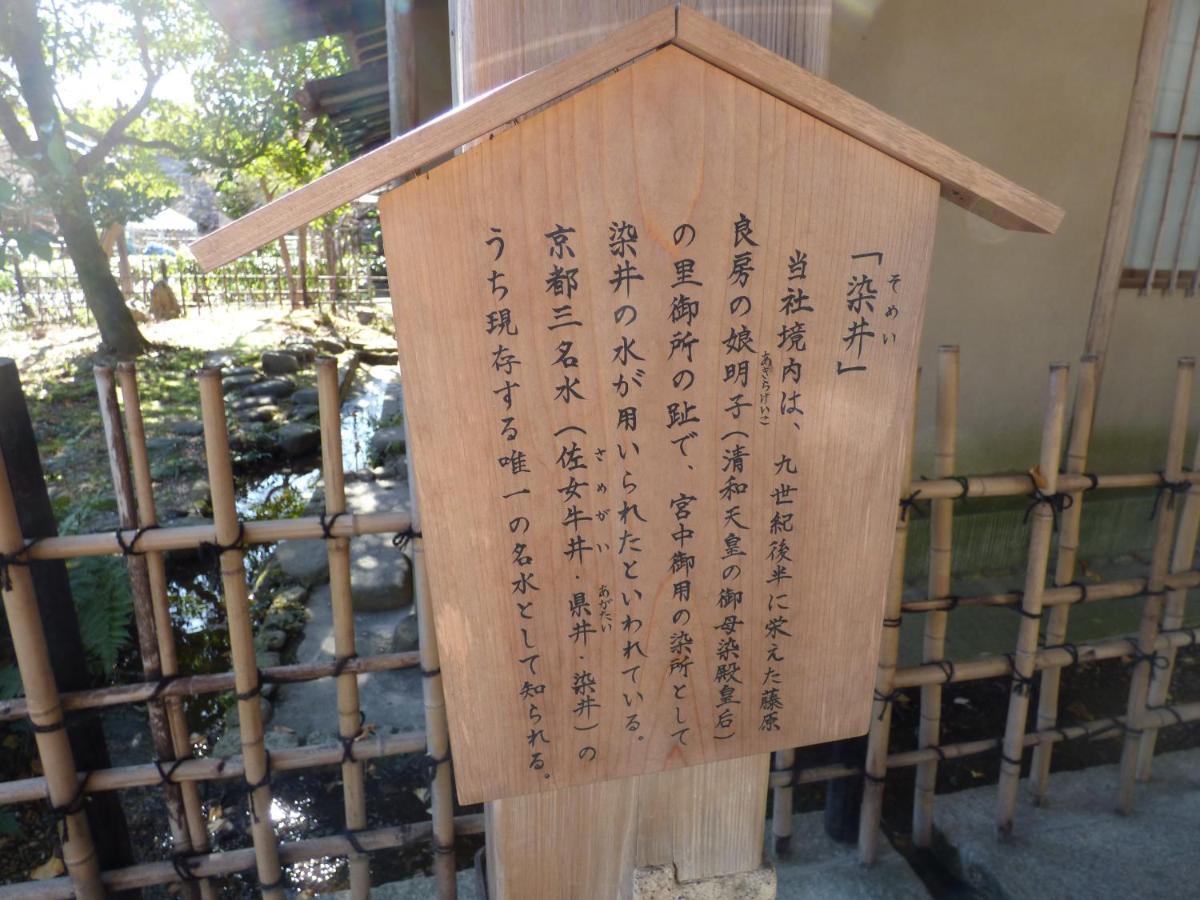 「染井」
そめい
当社境内は、九世紀後半に栄えた藤原
良房の娘明子（清和天皇の御母染殿皇后）
あきらけいこ
の里御所の趾で、宮中御用の染所として
染井の水が用いられたといわれている。
京都三名水（佐女牛井・県井・染井）の
さめがい
あがたい
うち現存する唯一の名水として知られる。